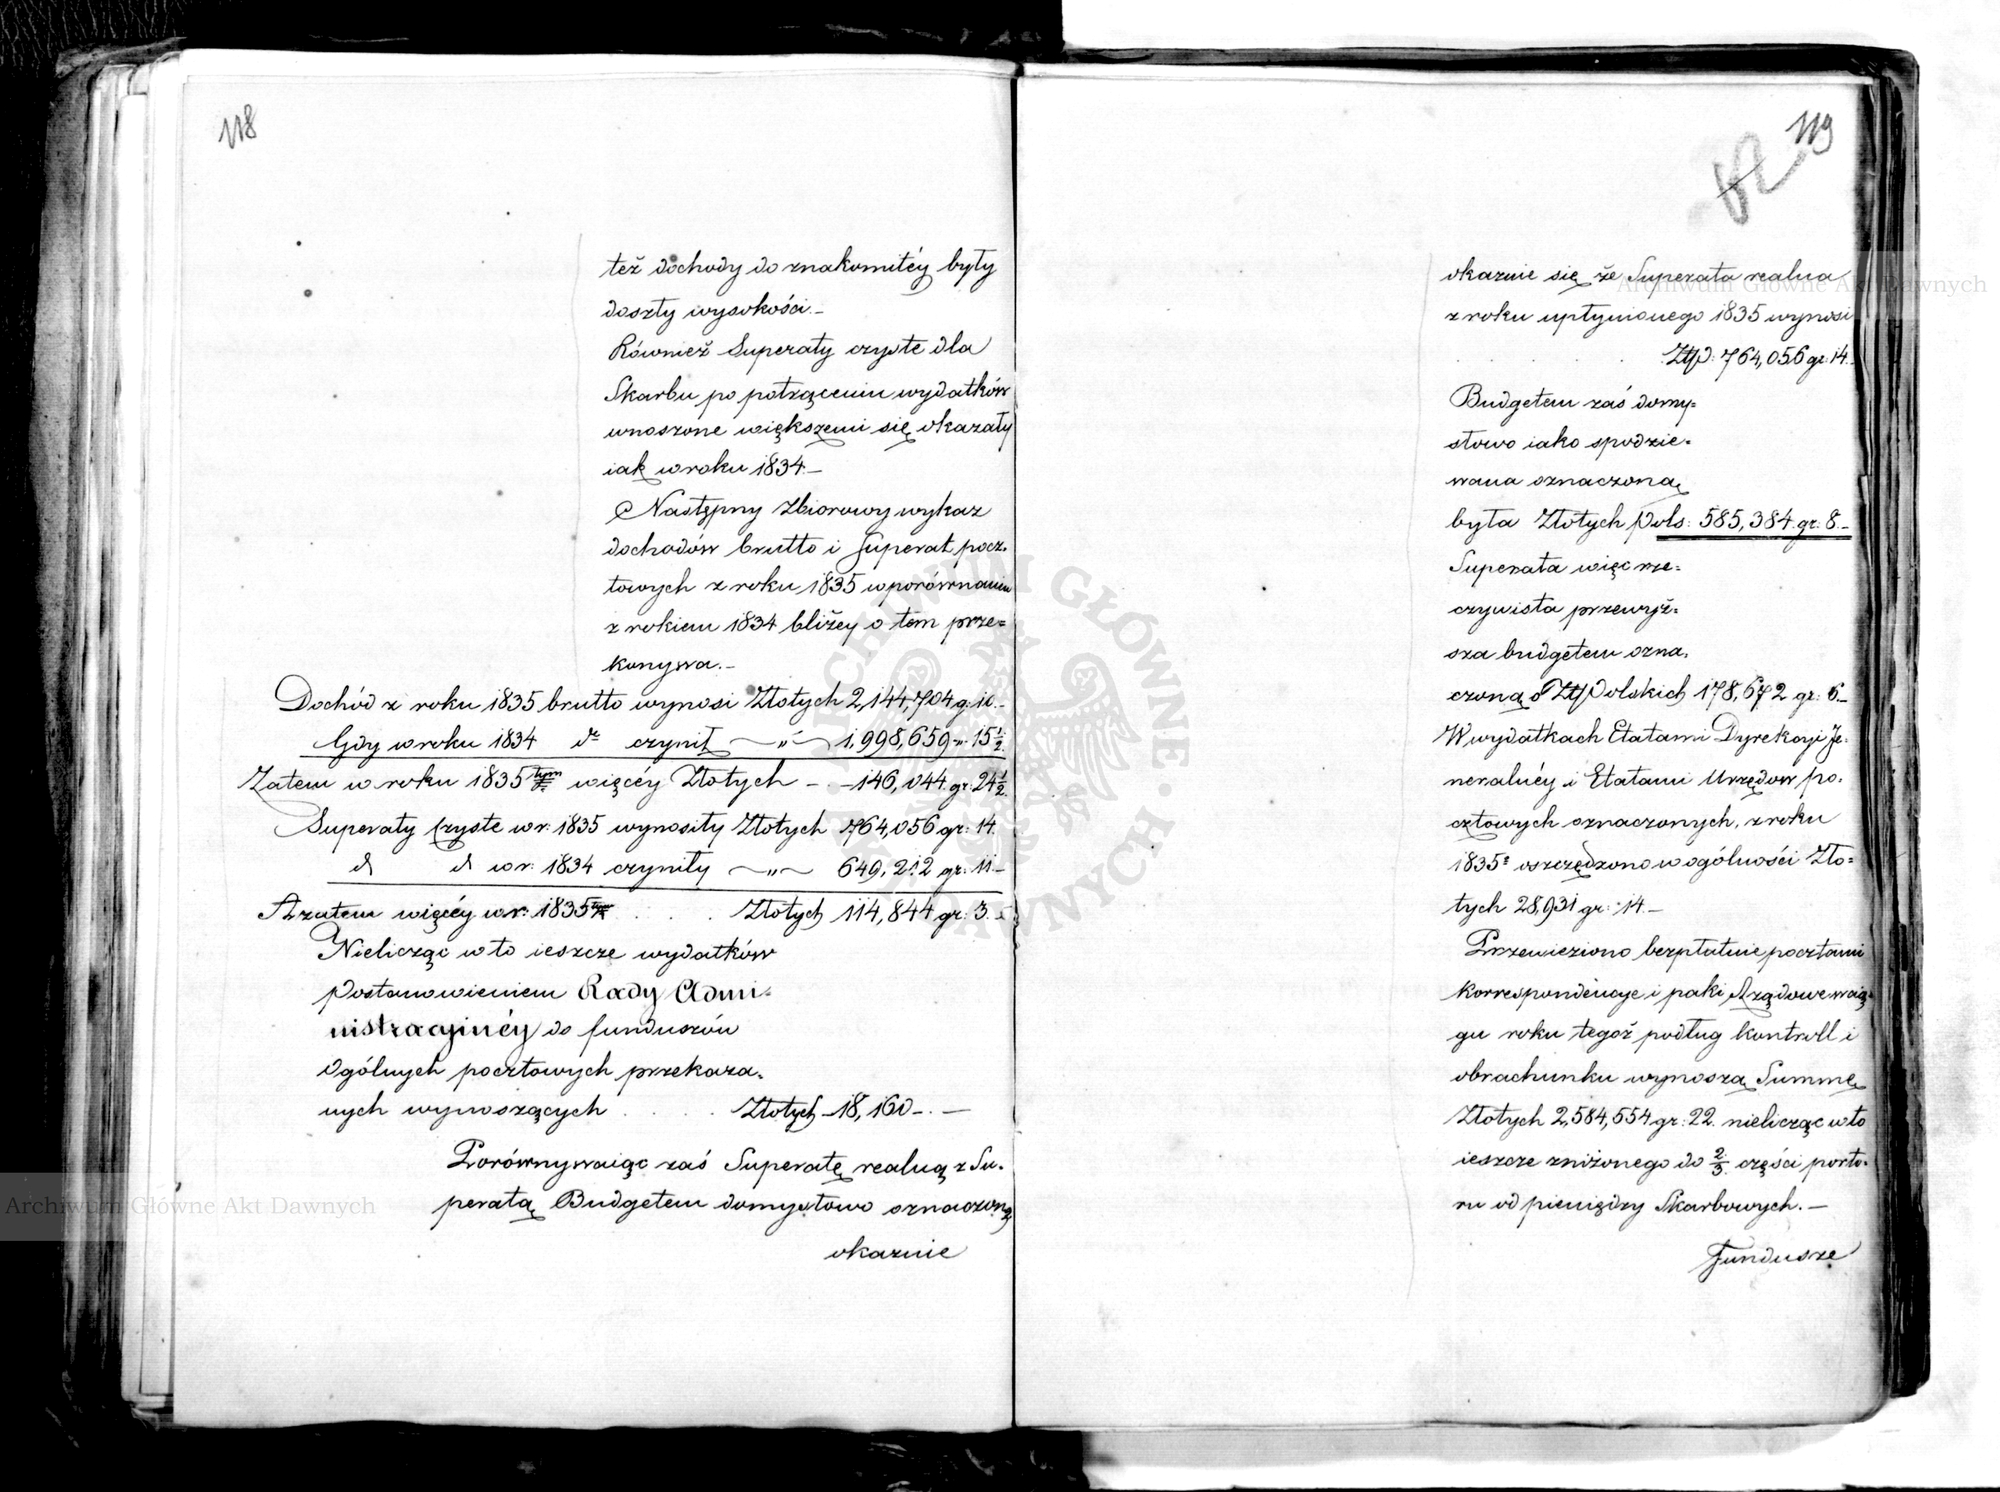 118
też dochody do znakomitéy były
doszły wysokości.–
Również Superaty czyste dla
Skarbu po potrąceniu wydatków
wnoszone większemi się okazały
iak w roku 1834.–
Następny Zbiorowy wykaz
dochodów brutto i Superat pocz=
towych z roku 1835 w porównaniu
z rokiem 1834 bliżey o tem prze=
konywa.–
Dochód z roku 1835 brutto wynosi Złotych 2,144,704 g: 10.–
Gdy w roku 1834 do czynił –"– 1,998,659 –"– 15 1/2
Zatem w roku 1835tym więcéy Złotych – – 146,044. gr: 24 1/2
Superaty czyste w r: 1835 wynosiły Złotych 764,056 gr: 14.
d d w r: 1834 czyniły –"– 649,212 gr: 11–
A zatem więcéy w r: 1835 . . . Złotych 114,844 gr: 3.–
Nielicząc w to ieszcze wydatków
Postanowieniem Rady Admi=
nistracyinéy do funduszów
Ogólnych pocztowych przekaza=
nych wynoszących . . . Złotych 18,160 – . –
Porównywaiąc zaś Superatę realną z Su=
peratą Budgetem domysłowo oznaczoną
okaznie
119
okaznie się że Superata realna
z roku upłynionego 1835 wynosi
Złp: 764,056 gr: 14.
Budgetem zaś domy=
słowo iako spodzie=
wana oznaczoną
była Złotych Pols: 585,384. gr: 8.–
Superata więc rze=
czywista przewyż=
sza budgetem ozna=
czoną o Złł Polskich 178,672 gr: 6.–
W wydatkach Etatami Dyrekcyi Je=
neralnéy i Etatami Urzędów po=
cztowych oznaczonych, z roku
1835 oszczędzono w ogólności Zło=
tych 28,931 gr: 14.–
Przewieziono bezpłatnie pocztami
korrespondencye i paki Rządowe w cią=
gu roku tegoż podług kontroll i
obrachunku wynoszą Summę
Złotych 2,584,554 gr: 22. nielicząc w to
ieszcze zniżonego do 2/3 części porto=
ru od pieniędzy Skarbowych.–
Fundusze
Archiwum Główne Akt Dawnych
Archiwum Główne Akt Dawnych
ARCHIWUM GŁÓWNE AKT DAWNYCH